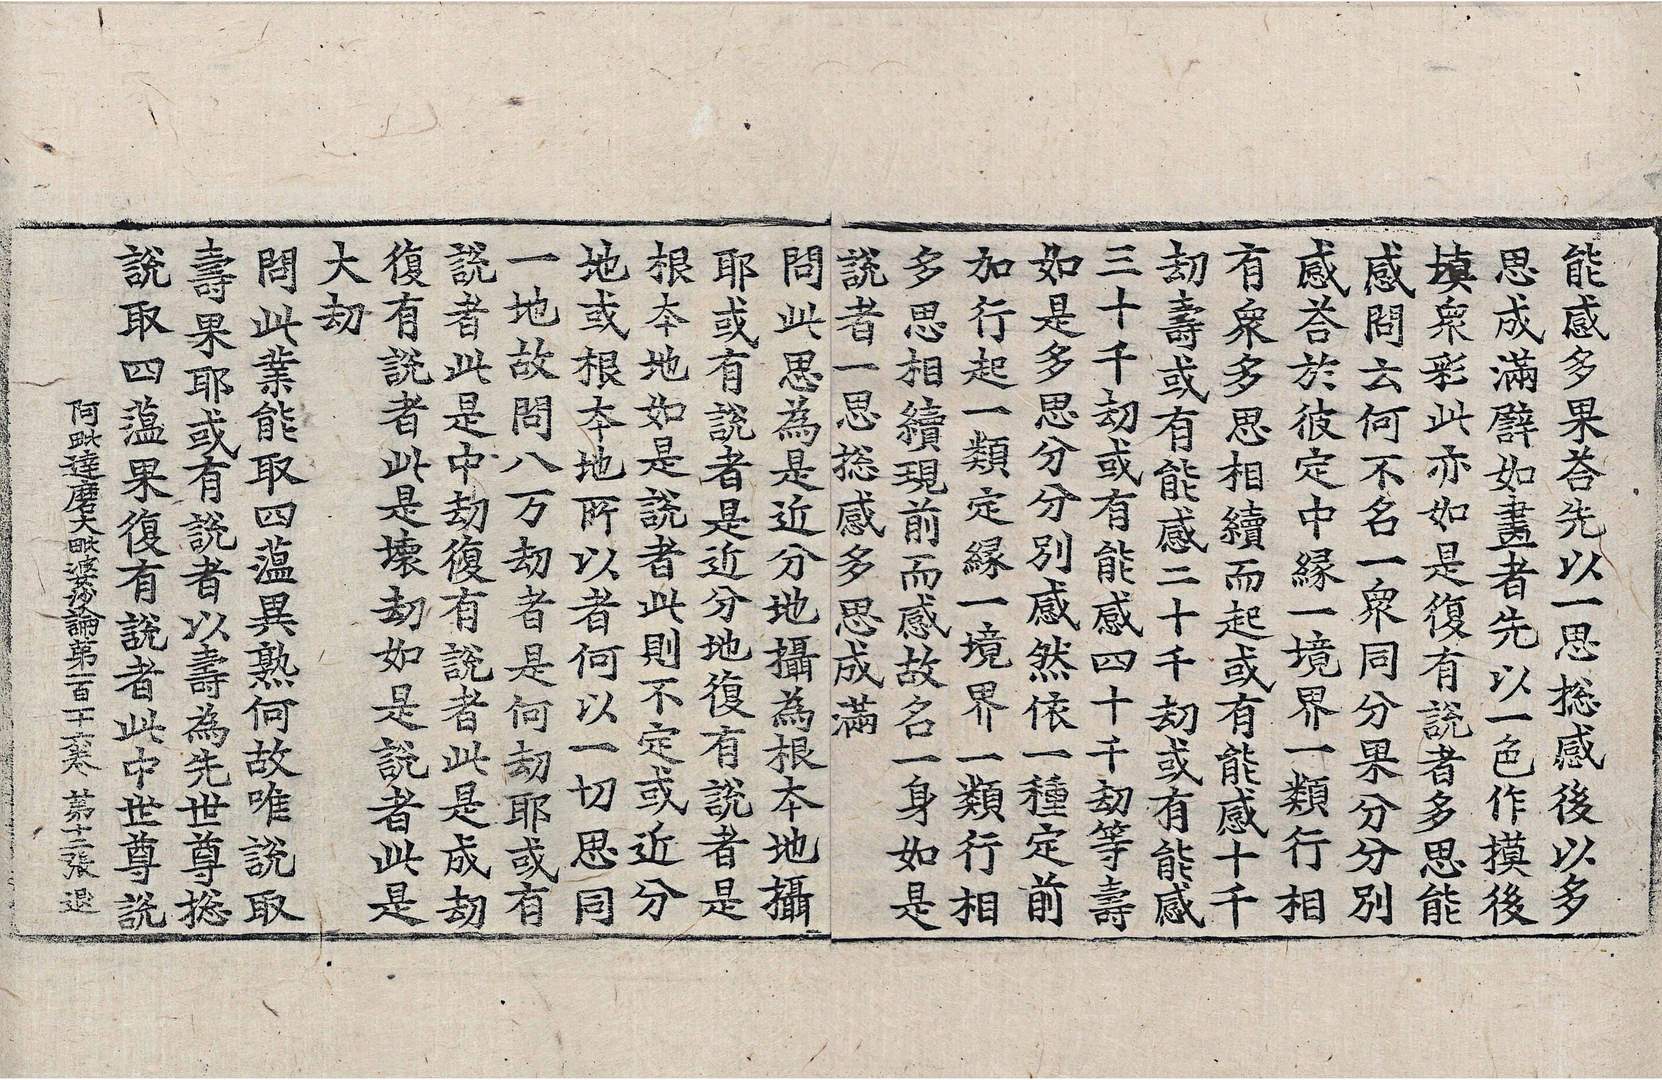 能感多果荅先以一思捴感後以多
思成滿譬如畫者先以一色作摸後
填衆彩此亦如是復有說者多思能
感問云何不名一衆同分果分分別
感荅於彼定中縁一境界一類行相
有衆多思相續而起或有能感十千
劫壽或有能感二十千劫或有能感
三十千劫或有能感四十千劫等壽
如是多思分分別感然依一種定前
加行起一類定縁一境界一類行相
多思相續現前而感故名一身如是
說者一思捴感多思成滿
問此思為是近分地攝為根本地攝
耶或有說者是近分地復有說者是
根本地如是說者此則不定或近分
地或根本地所以者何以一切思同
一地故問八万劫者是何劫耶或有
說者此是中劫復有說者此是成劫
復有說者此是壞劫如是說者此是
大劫
問此業能取四蕰異熟何故唯說取
壽果耶或有說者以壽為先世尊捴
說取四蕰果復有說者此中世尊說
阿毗達磨大毗婆沙論第一百十六卷 第十二張 退